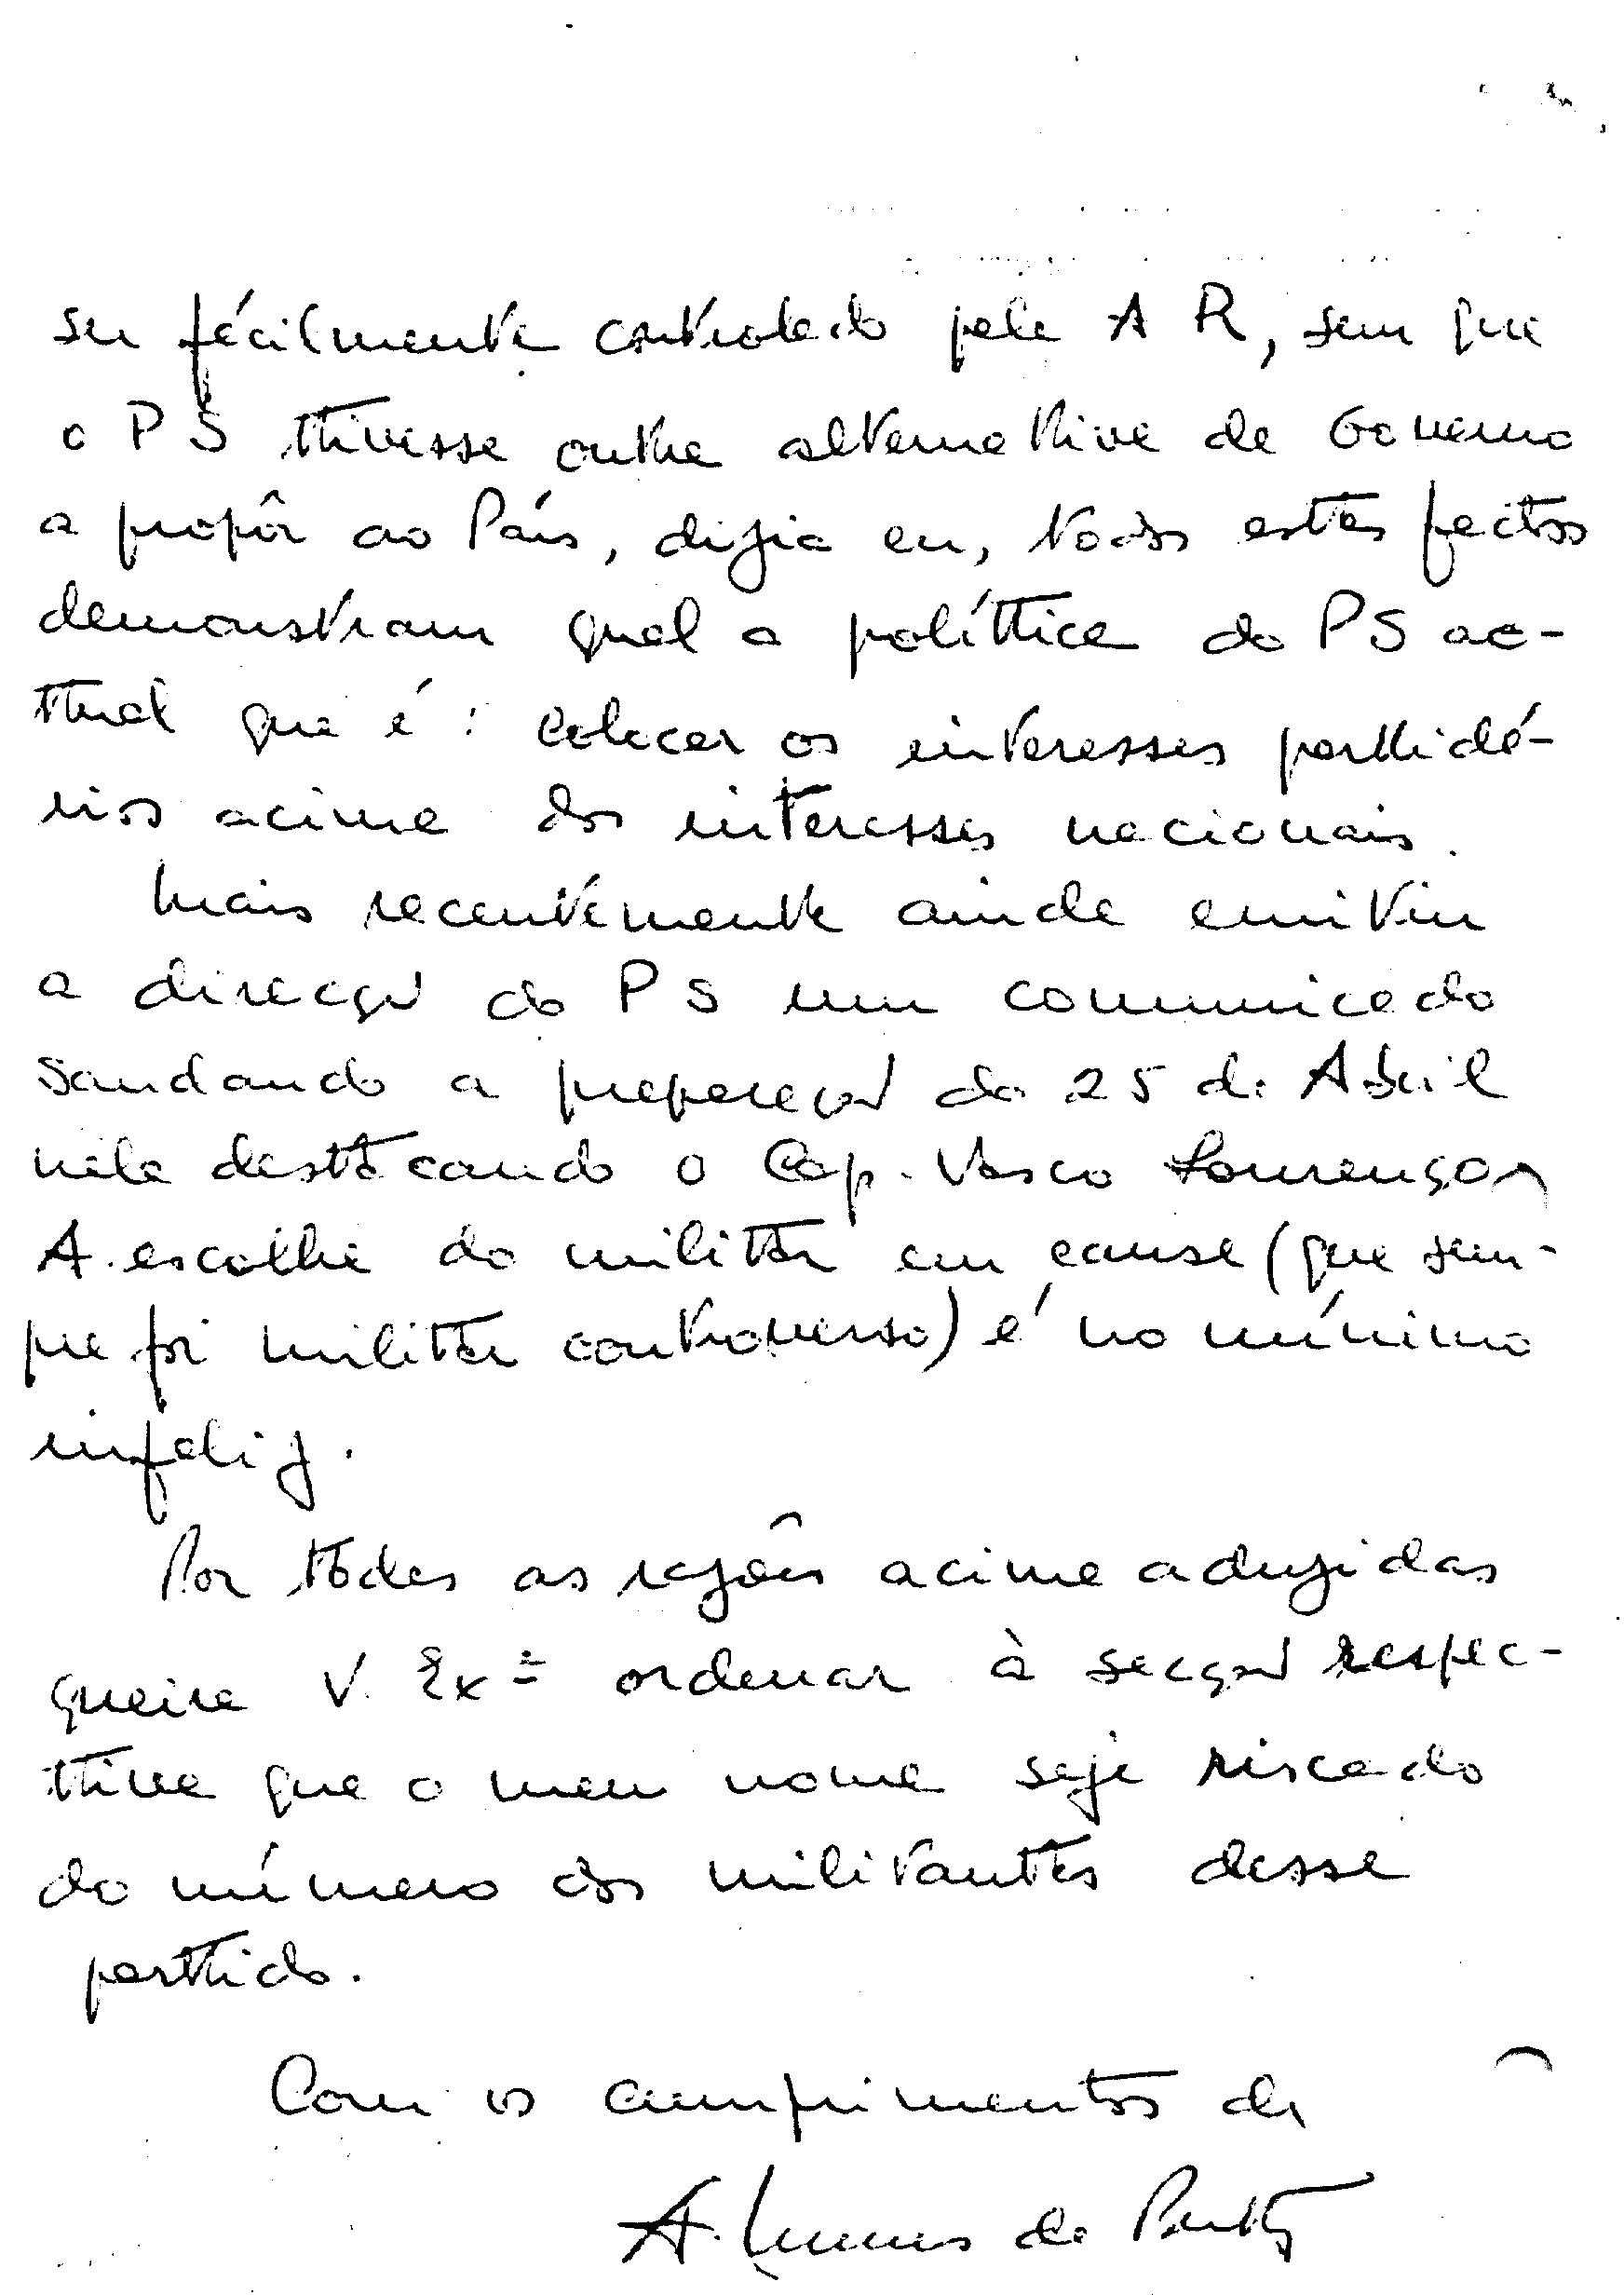 ser fácilmente controlado pela A R, sem que
o P S tivesse outra alternativa de Governo
a propôr ao País, dizia eu, todos estes factos
demonstram qual a política do PS ac-
tual que é: colocar os interesses partidá-
rios acima dos interesses nacionais.
Mais recentemente ainda emitiu
a direcção do P S um comunicado
saudando a preparação do 25 de Abril
nele destacando o Cap. Vasco Lourenço.
A escolha do militar em causa (que sem-
pre foi militar controverso) é no mínimo
infeliz.
Por todas as razões acima aduzidas
queira V. Exª ordenar à secção respec-
tiva que o meu nome seja riscado
do número dos militantes desse
partido.
Com os cumprimentos de
A. de